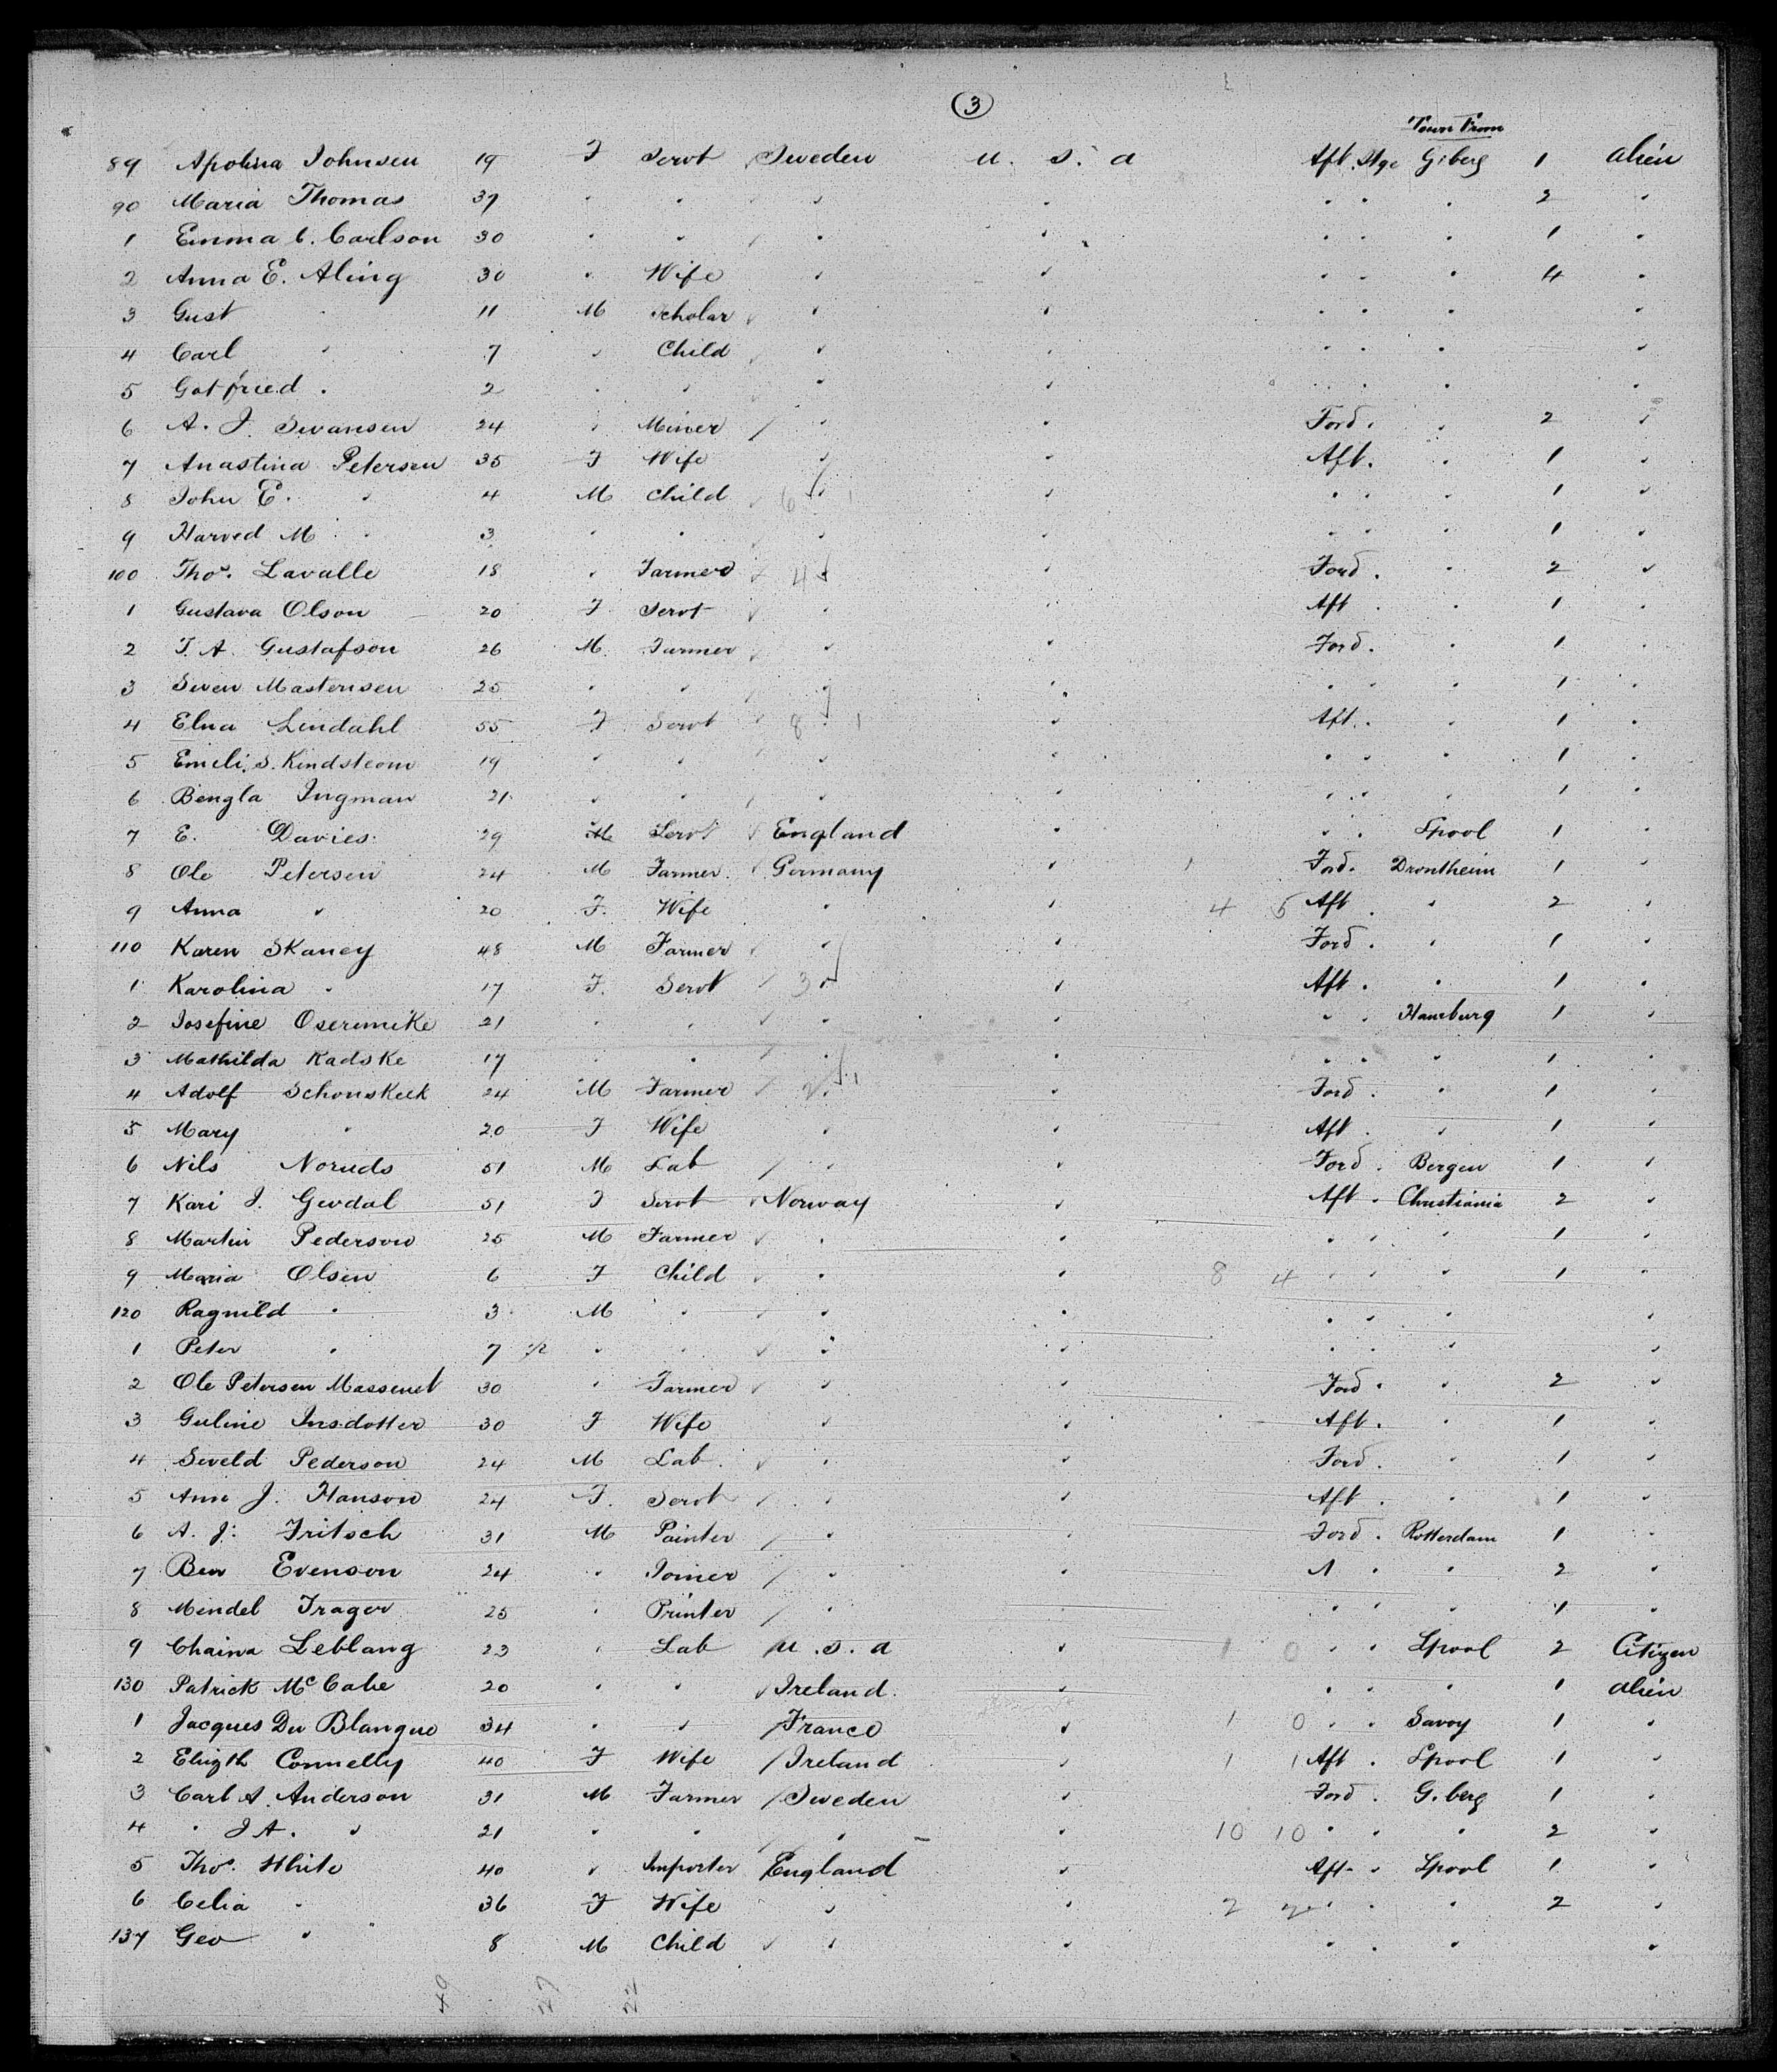 3
Town From
89 Apolina Johnsen 19 F Servt Sweden U. S. A Aft. Stge G.berg 1 Alien
90 Maria Thomas 39 " " " " " " " 2 "
1 Emma C. Carlson 30 " " " " " " " 1 "
2 Anna E. Aling 30 " Wife " " " " " 4 "
3 Gust " 11 M Scholar " " " " " "
4 Carl " 7 " Child " " " " " "
5 Gotfried " 2 " " " " " " " "
6 A. J. Swansen 24 " Miner " " Ford. " 2 "
7 Anastina Petersen 35 F Wife " " Aft. " 1 "
8 John E. " 4 M Child " 6 1 " " " " 1 "
9 Harved M " 3 " " " " " " " 1 "
100 Thos. Lavalle 18 " Farmer 4 " " Ford. " 2 "
1 Gustava Olson 20 F Servt " " Aft " 1 "
2 J. A. Gustafson 26 M Farmer " " Ford. " 1 "
3 Swen Mastensen 25 " " " " " " " 1 "
4 Elna Lindahl 55 F Servt 8 1 " " Aft. " 1 "
5 Emeli. S. Kindstrom 19 " " " " " " " 1 "
6 Bengla Ingman 21 " " " " " " " 1 "
7 E. Davies 29 M Servt England " " " Lpool 1 "
8 Ole Petersen 24 M Farmer Germany " 1 Ford. Drontheim 1 "
9 Anna " 20 F. Wife " " 4 5 Aft. " 2 "
110 Karen Skaney 48 M Farmer " " Ford. " 1 "
1 Karolina " 17 F. Servt 3 " " Aft. " 1 "
2 Josefine Oseremike 21 " " " " " " Hamburg 1 "
3 Mathilda Kadske 17 " " " " " " " 1 "
4 Adolf Schonskeek 24 M Farmer 2 1 " " Ford. " 1 "
5 Mary " 20 F Wife " " Aft. " 1 "
6 Nils Noruds 51 M Lab " " Ford. Bergen 1 "
7 Kari J. Gevdal 51 F Servt Norway " Aft. Christiania 2 "
8 Martin Pederson 25 M Farmer " " " " " 1 "
9 Maria Olsen 6 F Child " " 8 4 " " " 1 "
120 Ragnild " 3 M " " " " " " "
1 Peter " 7 /12 " " " " " " " "
2 Ole Petersen Massenet 30 " Farmer " " Ford. " 2 "
3 Guline Insdotter 30 F Wife " " Aft. " 1 "
4 Seveld Pederson 24 M Lab. " " Ford. " 1 "
5 Ane J. Hanson 24 F. Servt " " Aft. " 1 "
6 A. J. Fritsch 31 M Painter " " Ford. Rotterdam 1 "
7 Ben Evenson 24 " Joiner " " " " " 2 "
8 Mendel Trager 25 " Printer " " " " " 1 "
9 Chaina Leblang 23 " Lab U. S. A " 1 0 " " Lpool 2 Citizen
130 Patrick McCabe 20 " " Ireland. " " " " 1 Alien
1 Jacques Du Blangue 34 " " France " 1 0 " " Savoy 1 "
2 Elizth Connelly 40 F Wife Ireland " 1 1 Aft. Lpool 1 "
3 Carl A. Anderson 31 M Farmer Sweden " Ford. G.berg 1 "
4 " J A. " 21 " " " " 10 10 " " " 2 "
5 Thos. White 40 " Importer England " Aft. " Lpool 1 "
6 Celia " 36 F Wife " " 2 2 " " " 2 "
137 Geo " 8 M Child " " " " " "
49 27 22